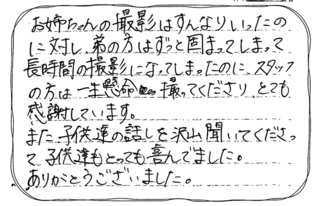 お姉ちゃんの撮影はすんなりいったの
に対し、弟の方はずっと固まってしまって
長時間の撮影になってしまったのに、スタッフ
の方は一生懸命撮ってくださり、とても
感謝しています。
また、子供達の話しを沢山聞いてくださっ
て、子供達もとっても喜んでました。
ありがとうございました。